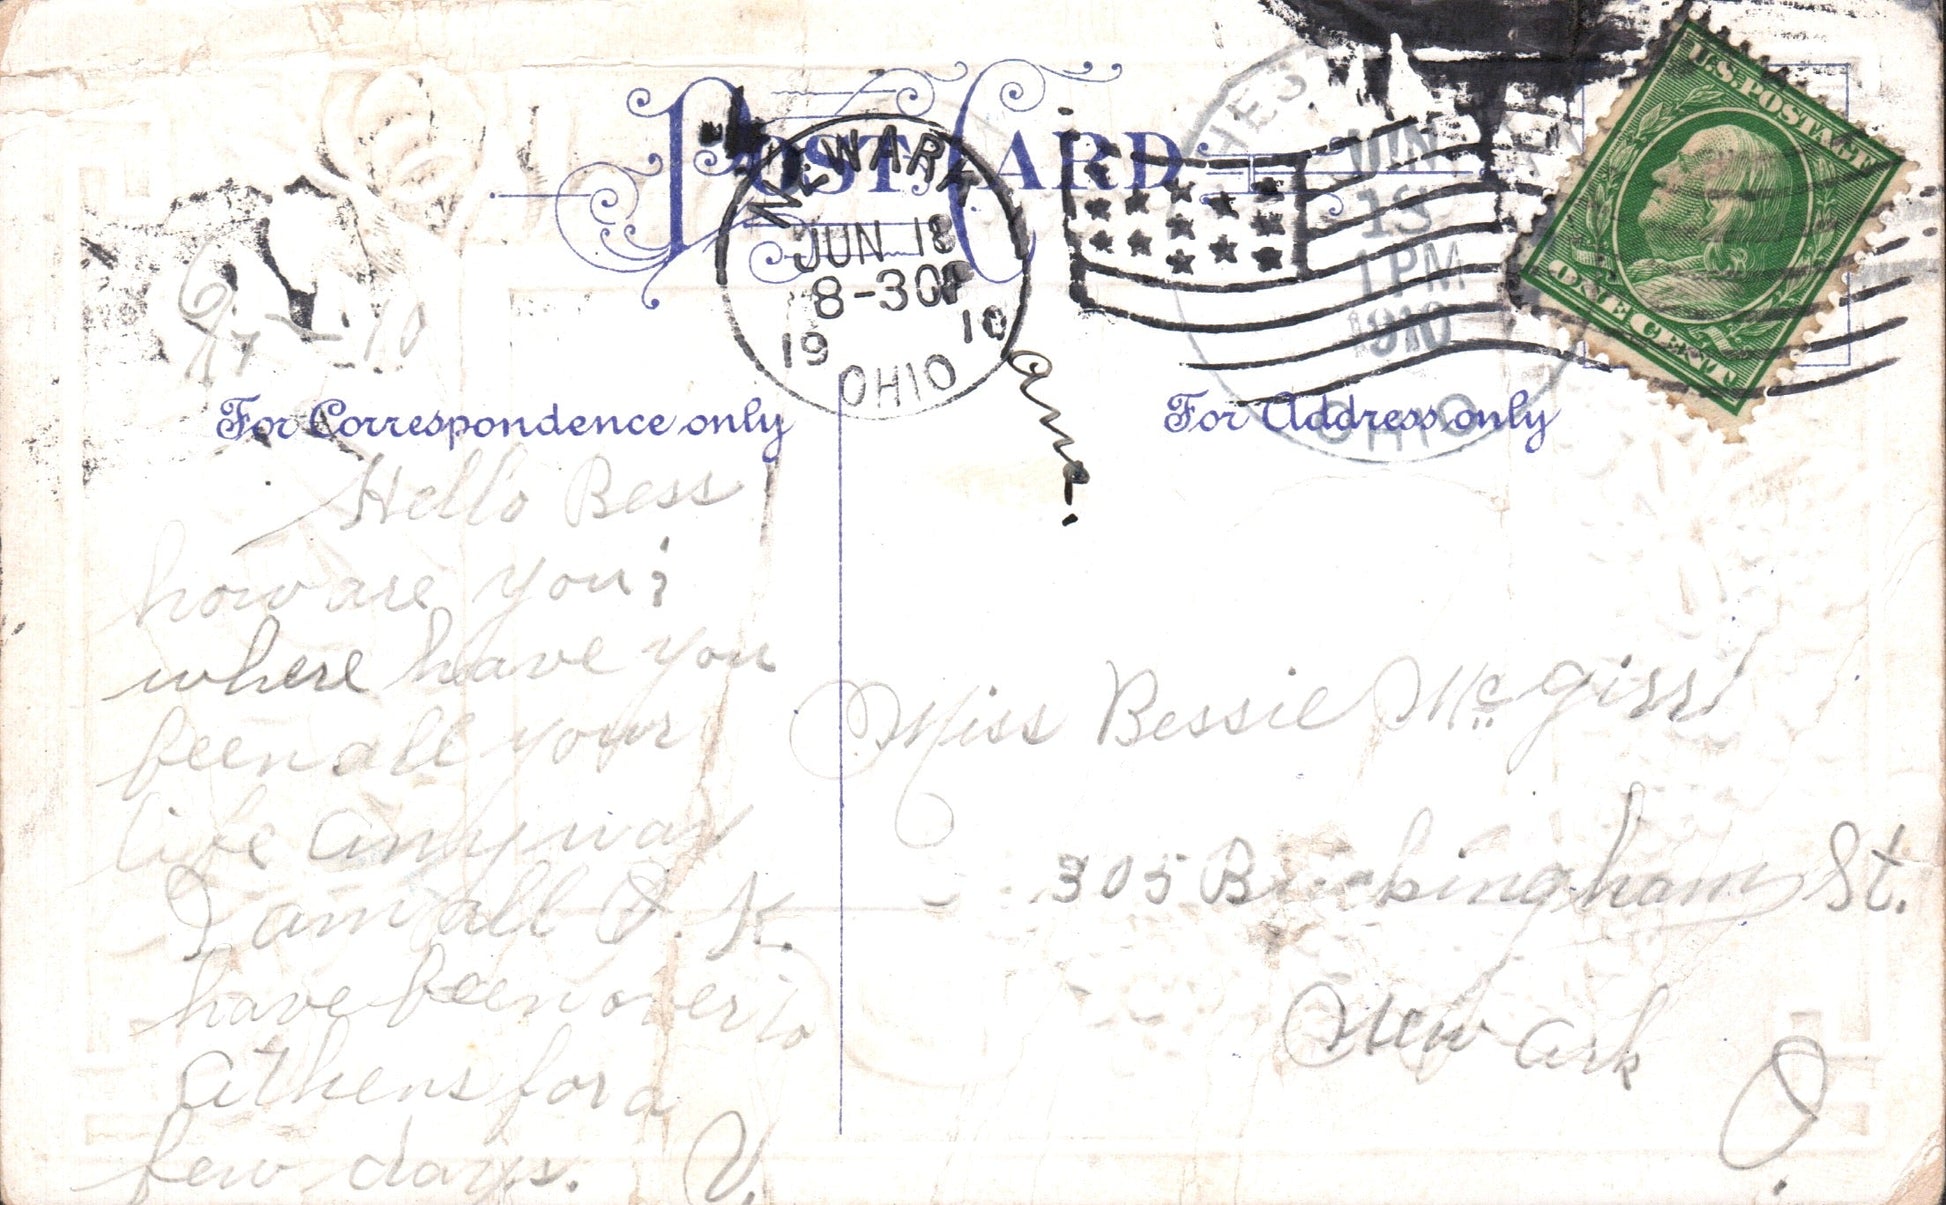 POST CARD
NEWARK
JUN 18
8-30P
19 10
OHIO
Ans.
JUN
13
1 PM
1910
OHIO
U.S. POSTAGE
ONE CENT
6/17-10
For Correspondence only
For Address only
Hello Bess
how are you;
where have you
been all your
life anyway
I am all O.K.
have been over to
Athens for a
few days. V.
Miss Bessie McGirr
305 Buckingham St.
New ark
O.